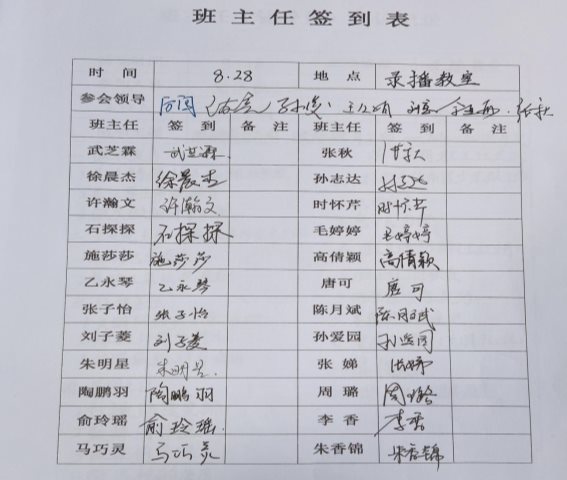 班主任签到表
时 间 8.28 地 点 录播教室
参会领导 张秋
班主任 签 到 备 注 班主任 签 到 备 注
武芝霖 武芝霖 张秋 张秋
徐晨杰 徐晨杰 孙志达 孙志达
许瀚文 许瀚文 时怀芹 时怀芹
石探探 石探探 毛婷婷 毛婷婷
施莎莎 施莎莎 高倩颖 高倩颖
乙永琴 乙永琴 唐可 唐可
张子怡 张子怡 陈月斌 陈月斌
刘子菱 刘子菱 孙爱园 孙爱园
朱明星 朱明星 张 娣 张娣
陶鹏羽 陶鹏羽 周 璐 周璐
俞玲瑶 俞玲瑶 李 香 李香
马巧灵 马巧灵 朱香锦 朱香锦